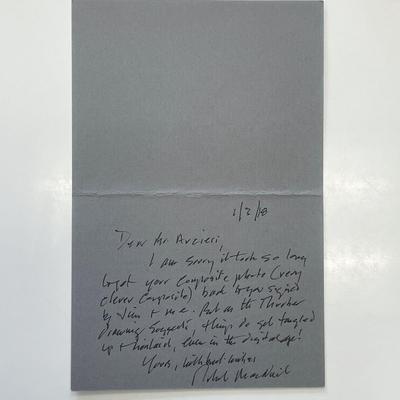 1/2/18
Dear Mr. Arzieri,
I am sorry it took so long
to get your composite photo (very
clever composite) back to you signed
by Jim + me. But as the Thurber
drawing suggests, things do get tangled
up + mislaid, even in the digital age!
Yours, with best wishes
Robert MacNeil